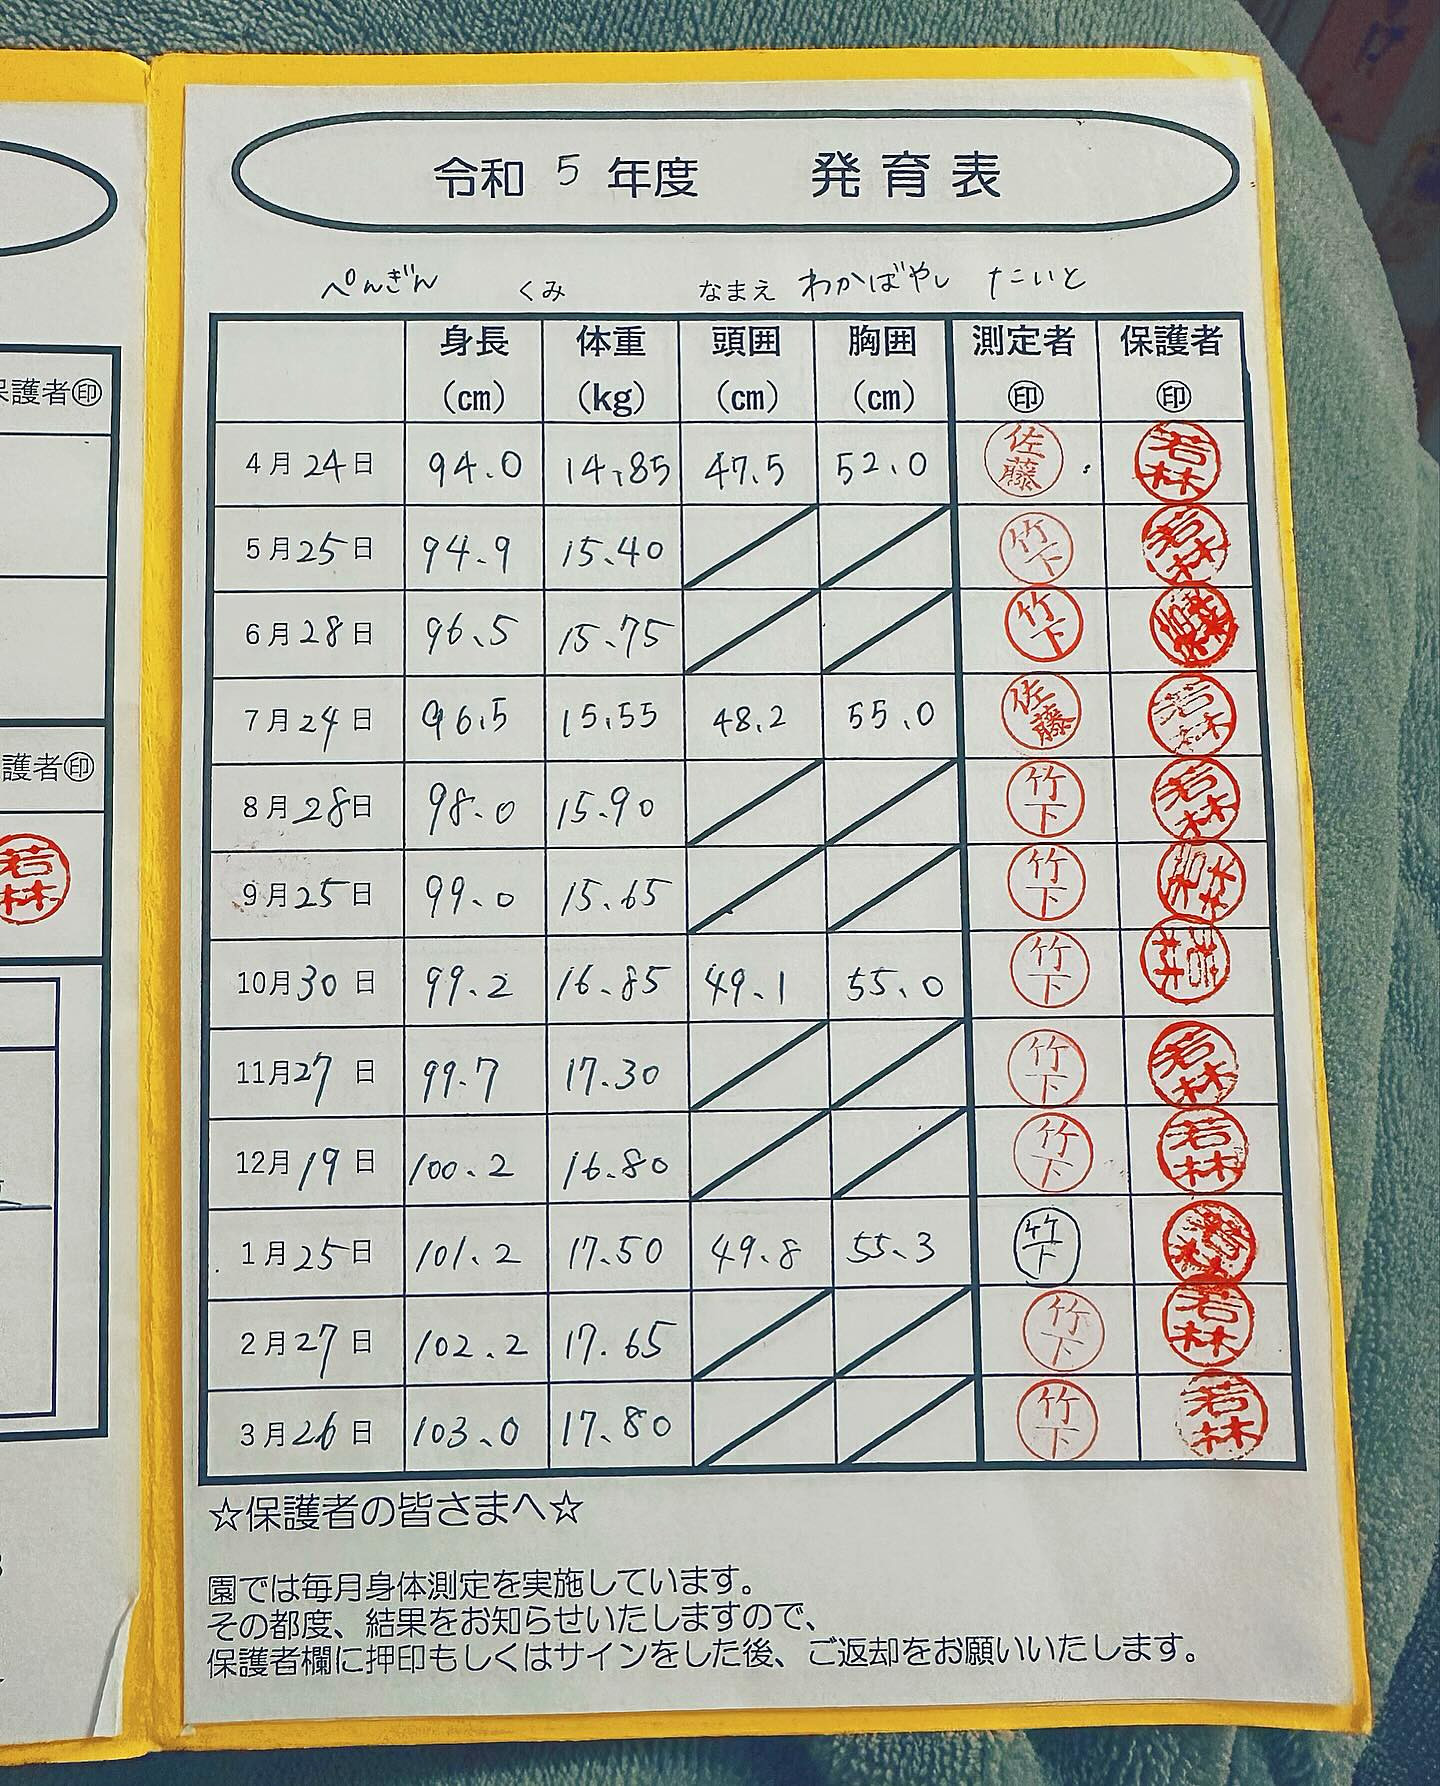 令和 5 年度 発育表
ぺんぎん くみ なまえ わかばやし たいと
身長 体重 頭囲 胸囲 測定者 保護者
(cm) (kg) (cm) (cm) ㊞ ㊞
4月24日 94.0 14.85 47.5 52.0 佐藤 若林
5月25日 94.9 15.40 竹下 若林
6月28日 96.5 15.75 竹下
7月24日 96.5 15.55 48.2 55.0 佐藤 若林
8月28日 98.0 15.90 竹下 若林
9月25日 99.0 15.65 竹下 若林
10月30日 99.2 16.85 49.1 55.0 竹下 若林
11月27日 99.7 17.30 竹下 若林
12月19日 100.2 16.80 竹下 若林
1月25日 101.2 17.50 49.8 55.3 竹下
2月27日 102.2 17.65 竹下 若林
3月26日 103.0 17.80 竹下 若林
☆保護者の皆さまへ☆
園では毎月身体測定を実施しています。
その都度、結果をお知らせいたしますので、
保護者欄に押印もしくはサインをした後、ご返却をお願いいたします。
保護者㊞
護者㊞
若林